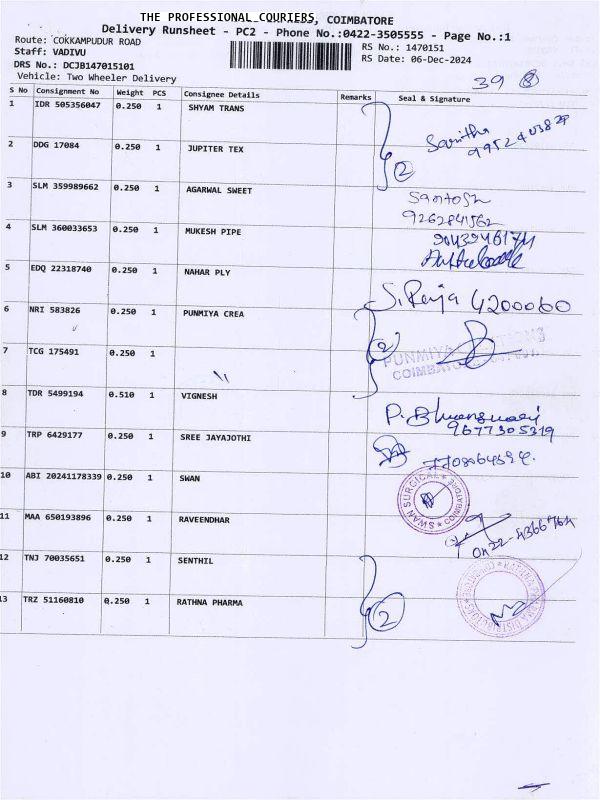 THE PROFESSIONAL COURIERS, COIMBATORE
Delivery Runsheet - PC2 - Phone No.:0422-3505555 - Page No.:1
Route: COKKAMPUDUR ROAD
Staff: VADIVU
DRS No.: DCJB147015101
Vehicle: Two Wheeler Delivery
RS No.: 1470151
RS Date: 06-Dec-2024
39 8
S No Consignment No Weight PCS Consignee Details Remarks Seal & Signature
1 IDR 505356047 0.250 1 SHYAM TRANS
2 DDG 17084 0.250 1 JUPITER TEX
2
3 SLM 359989662 0.250 1 AGARWAL SWEET Santosh
9262841562
4 SLM 360033653 0.250 1 MUKESH PIPE
5 EDQ 22318740 0.250 1 NAHAR PLY S. Raja 4200060
6 NRI 583826 0.250 1 PUNMIYA CREA
2
7 TCG 175491 0.250 1
PUNMIYA
COIMBATORE
8 TDR 5499194 0.510 1 VIGNESH P. Bhuvaneswari
9677305319
9 TRP 6429177 0.250 1 SREE JAYAJOTHI
10 ABI 20241178339 0.250 1 SWAN SWAN SURGICAL COIMBATORE
11 MAA 650193896 0.250 1 RAVEENDHAR 0422-4366764
12 TNJ 70035651 0.250 1 SENTHIL
13 TRZ 51160810 0.250 1 RATHNA PHARMA
2